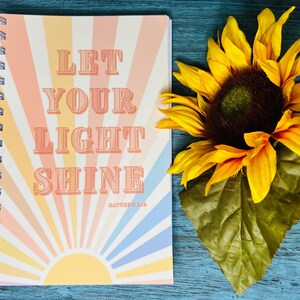 LET
YOUR
LIGHT
SHINE
MATTHEW 5:16